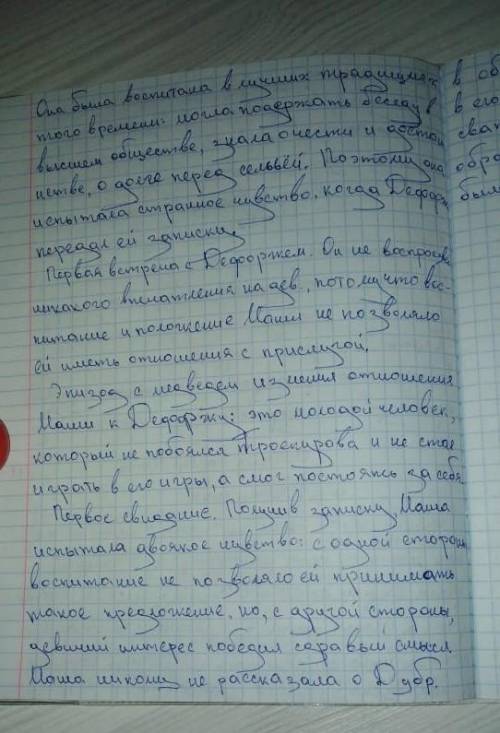 Она была воспитана в лучших традициях
того времени: могла подержать беседу в
высшем обществе, знала о чести и достои
нстве, о долге перед семьёй. Поэтому она
испытала странное чувство, когда Дефорж
передал ей записку.
Первая встреча с Дефоржем. Он не воспроизв
никакого впечатления на дев., потому что вос-
питание и положение Маши не позволяло
ей иметь отношения с прислугой.
Эпизод с медведем изменил отношения
Маши к Дефоржу: это молодой человек,
который не побоялся Троекурова и не стал
играть в его игры, а смог постоять за себя
Первое свидание. Получив записку, Маша
испытала двоякое чувство: с одной стороны
воспитание не позволяло ей принимать
такое предложение, но, с другой стороны,
девичий интерес победил здравый смысл.
Маша никому не рассказала о Дубр.
в об
в его
сват
обра
был